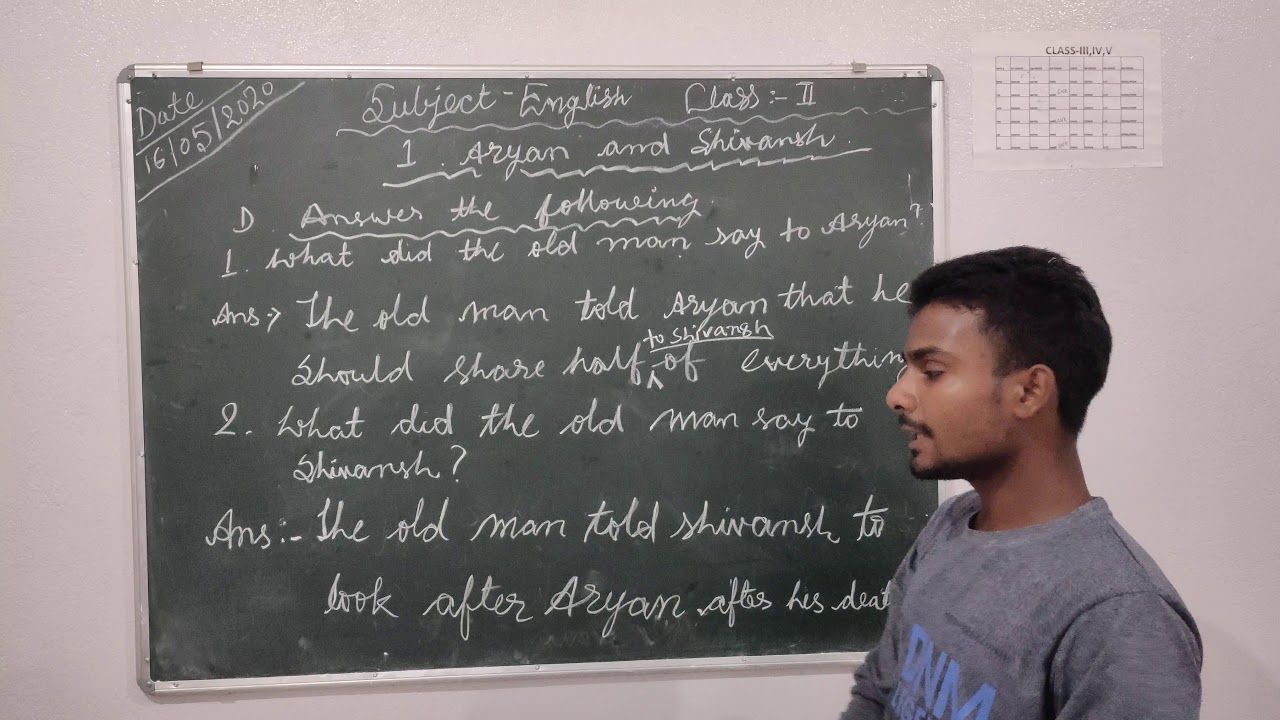 Date
16/05/2020
Subject-English Class:- II
1. Aryan and Shivansh.
D. Answer the following.
1. What did the old man say to Aryan?
Ans:→ The old man told Aryan that he
to Shivansh
should share half of everythin
2. What did the old man say to
Shivansh?
Ans:- The old man told shivansh to
look after Aryan after his deat
CLASS-III,IV,V
DNM